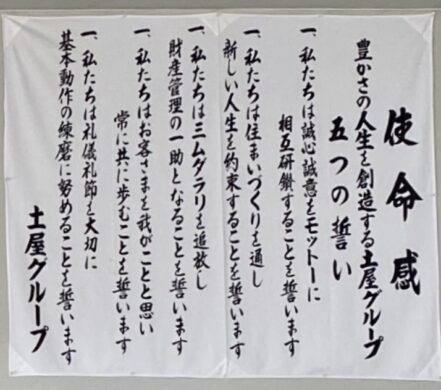 使命感
豊かさの人生を創造する土屋グループ
五つの誓い
一、私たちは誠心誠意をモットーに
相互研鑚することを誓います
一、私たちは住まいづくりを通し
新しい人生を約束することを誓います
一、私たちは三ムダラリを追放し
財産管理の一助となることを誓います
一、私たちはお客さまを我がことと思い
常に共に歩むことを誓います
一、私たちは礼儀礼節を大切に
基本動作の練磨に努めることを誓います
土屋グループ